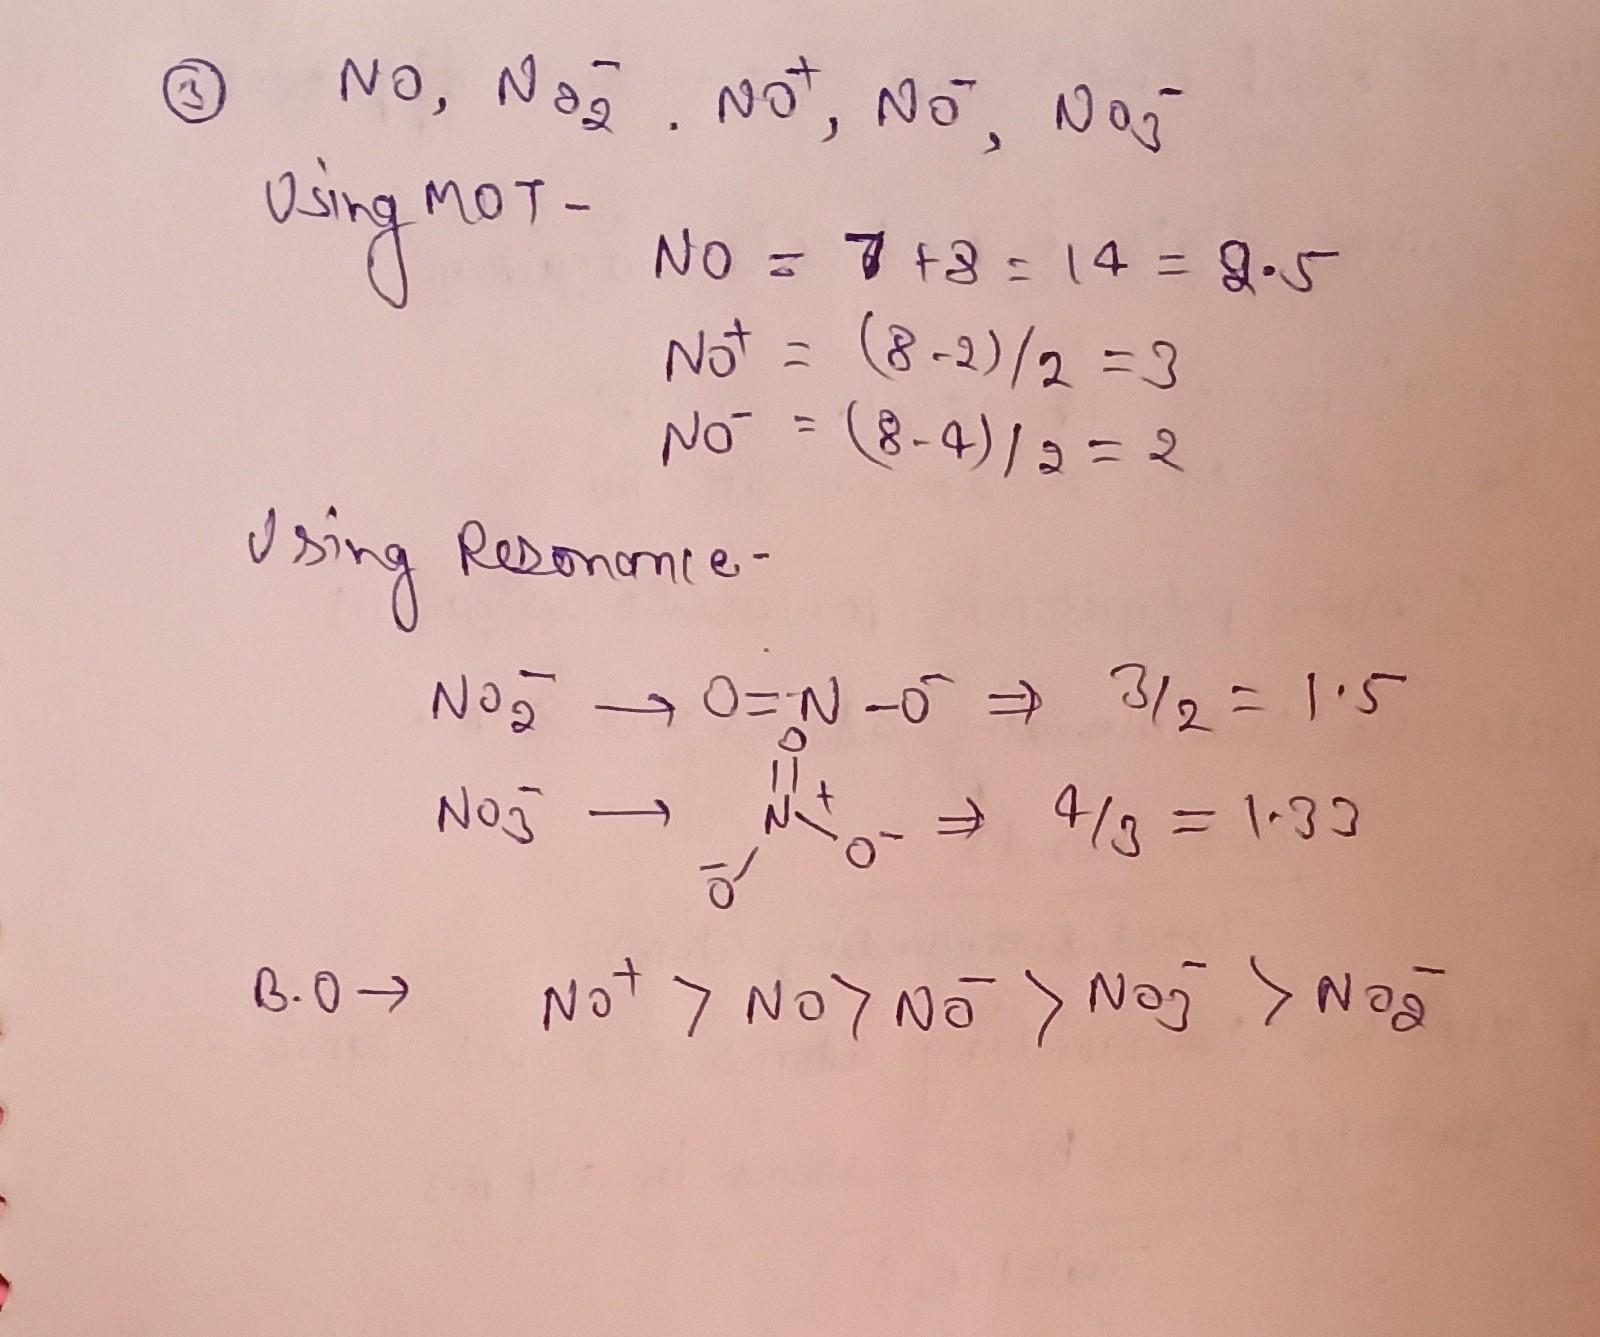 ③ NO, NO₂⁻. NO⁺, NO⁻, NO₃⁻
Using MOT -
NO = 7 + 8 = 14 = 2.5
NO⁺ = (8-2)/2 = 3
NO⁻ = (8-4)/2 = 2
Using Resonance -
NO₂⁻ → O=N-O⁻ ⇒ 3/2 = 1.5
O
||
NO₃⁻ → N⁺ ⇒ 4/3 = 1.33
O⁻ O⁻
B.O → NO⁺ > NO > NO⁻ > NO₃⁻ > NO₂⁻